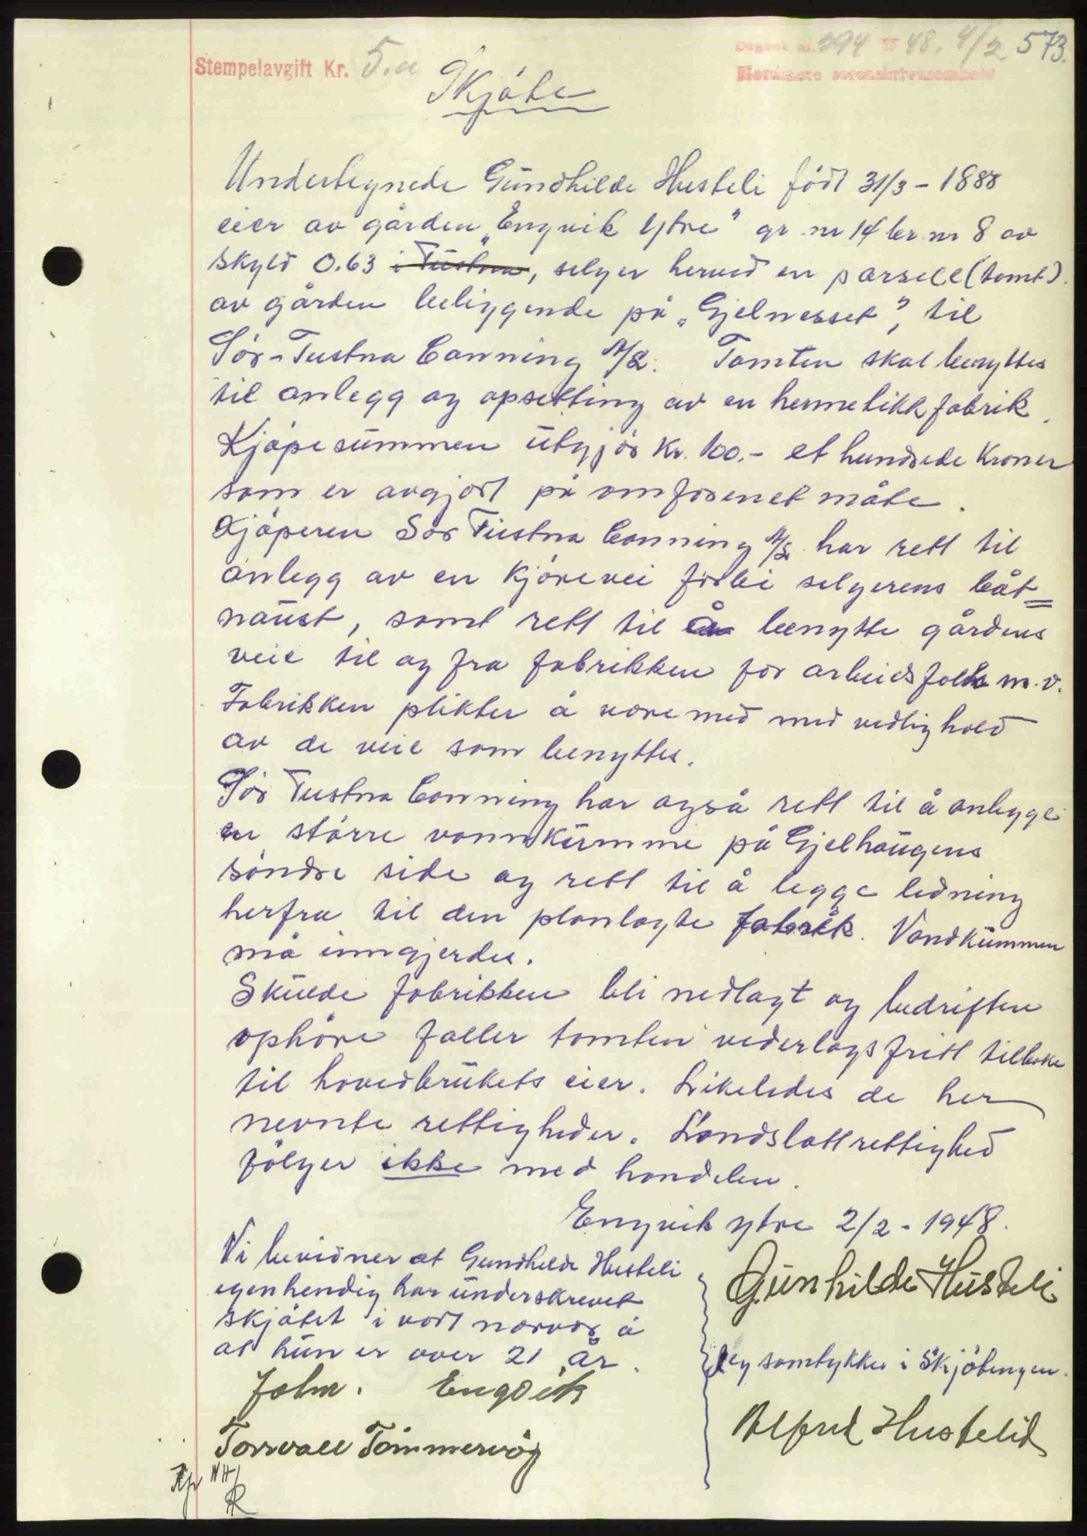 Stempelavgift Kr. 5.-
Dagbok nr. 294 19 48, 4/2 573.
Nordmøre sorenskriverembete
Skjøte
Undertegnede Gundhilde Husteli født 31/3 - 1888
eier av gården „Engvik Ytre" gr. nr 14 br. nr 8 av
skyld 0.63 i Tustna, selger herved en parsell (tomt)
av gården beliggende på „Gjelnesset", til
Sør-Tustna Canning A/S. Tomten skal benyttes
til anlegg og opsetting av en hermetikkfabrik.
Kjøpesummen utgjør Kr. 100.- et hundrede kroner
som er avgjort på omforenet måte.
Kjøperen Sør Tustna Canning A/S. har rett til
anlegg av en kjørevei forbi selgerens båt=
naust, samt rett til å benytte gårdens
veie til og fra fabrikken for arbeidsfolk m.v.
Fabrikken plikter å være med med vedlighold
av de veie som benyttes.
Sør Tustna Canning har også rett til å anlegge
en større vannkumme på Gjelhaugens
søndre side og rett til å legge ledning
herfra til den planlagte fabrik. Vandkummen
må inngjerdes.
Skulde fabrikken bli nedlagt og bedriften
ophøre faller tomten vederlagsfritt tilbake
til hovedbrukets eier. Likeledes de her
nevnte rettigheder. Landslottrettighed
følger ikke med handelen.
Engvik ytre 2/2 - 1948.
Vi bevidner at Gundhilde Husteli
egenhendig har underskrevet
skjøtet i vort nærvær å
at hun er over 21 år.
John. Engvik
Torvall Tømmervåg
Gunhilde Husteli
Jeg samtykker i skjøtingen.
Alfred Hustelid
NH/